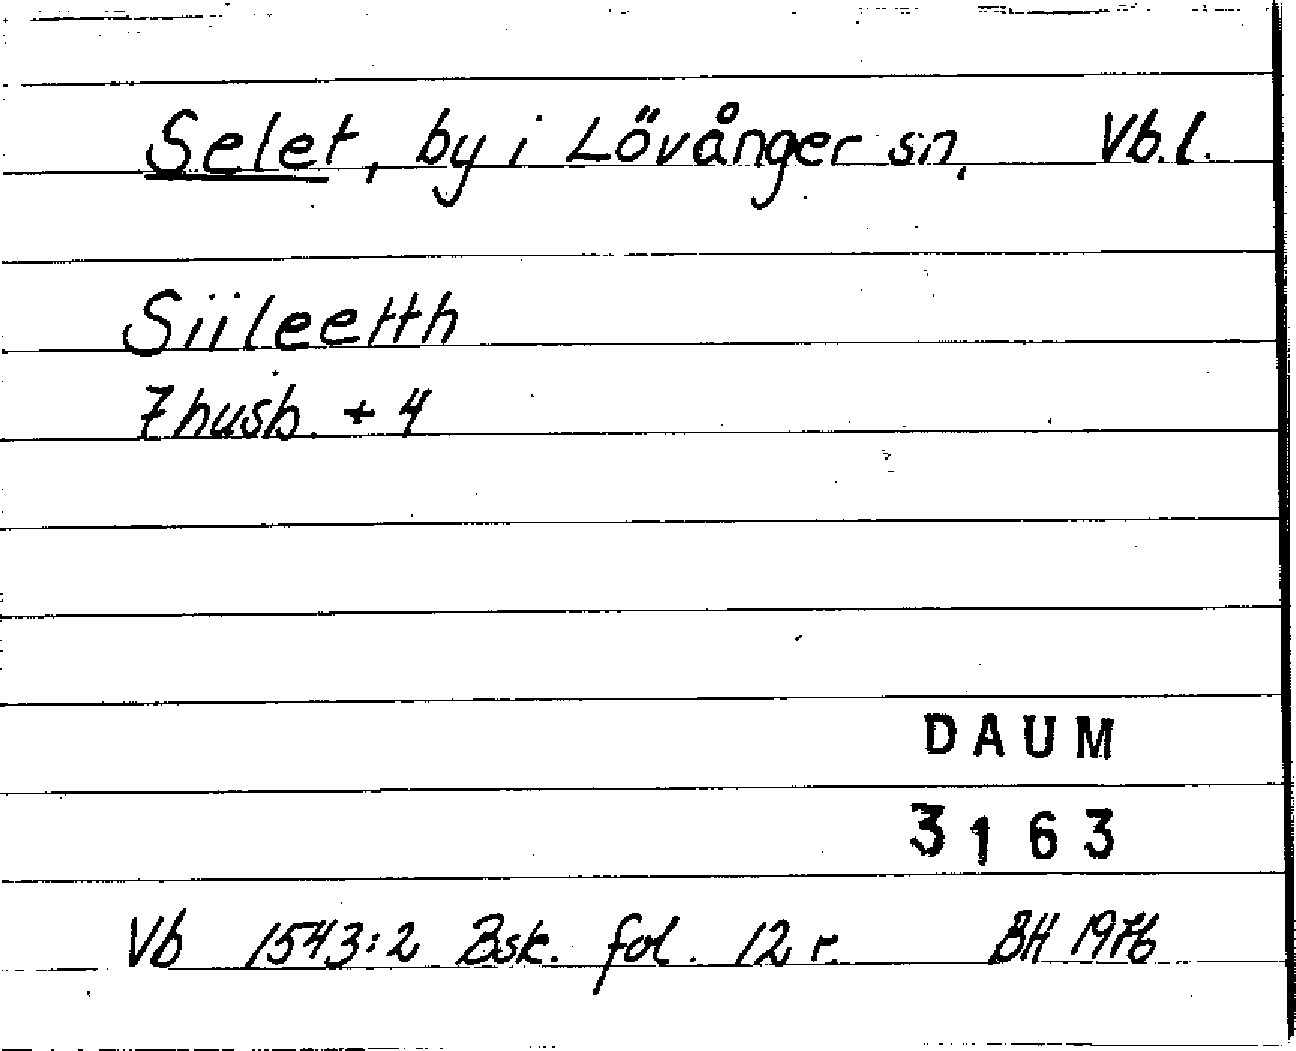 Selet, by i Lövånger sn. Vb.l.
Siileetth
7 husb. + 4
DAUM
3163
Vb 1543:2 Bsk. fol. 12 r. BH 1976